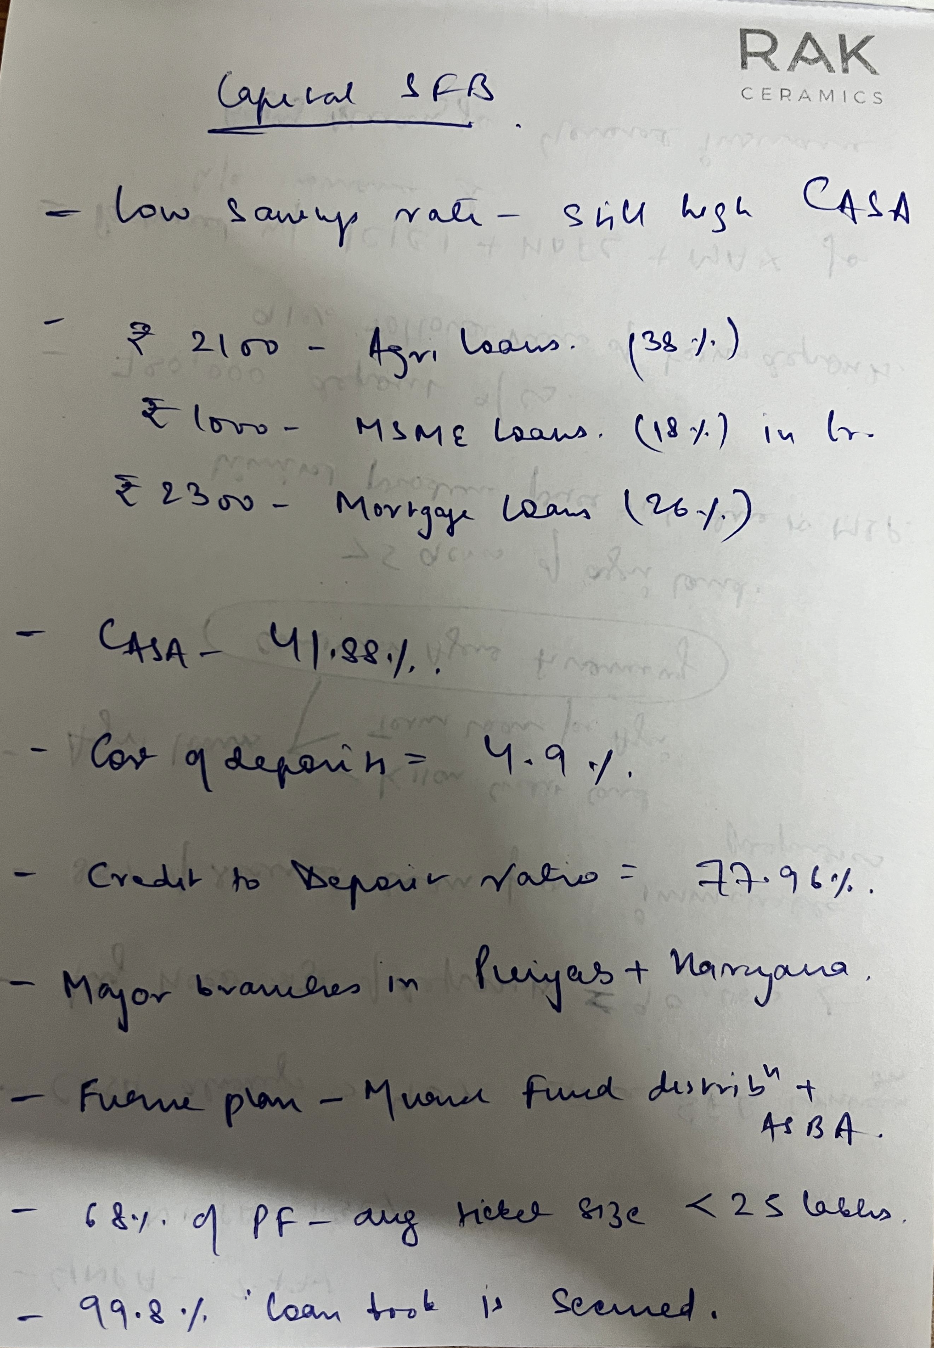 RAK
CERAMICS
Capital SFB
- Low savings rate - still high CASA
- ₹ 2100 - Agri loans. (38%)
₹ 1000 - MSME Loans. (18%) in Cr.
₹ 2300 - Mortgage Loans (26%)
- CASA - 41.88%.
- Cost of deposits = 4.9%.
- Credit to Deposit ratio = 77.96%.
- Major branches in Punjab + Haryana.
- Future plan - Mutual Fund distribⁿ +
ASBA.
- 68% of PF - avg ticket size < 25 lakhs.
- 99.8% loan book is secured.